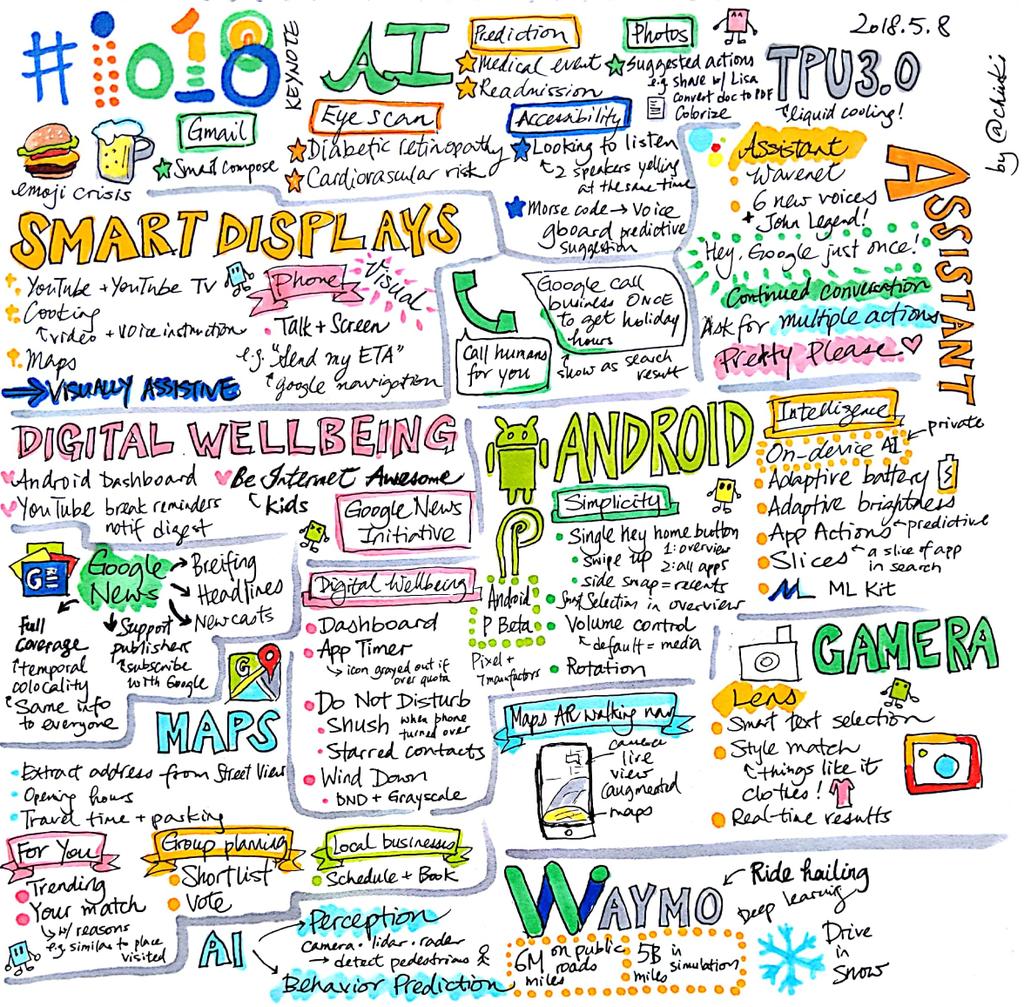 #io18
KEYNOTE
AI
Prediction
Medical event
Readmission
Photos
Suggested actions
e.g. share w/ Lisa
convert doc to PDF
Colorize
TPU3.0
liquid cooling!
2018.5.8
by @chiuki
emoji crisis
Gmail
Smart compose
Eye scan
Diabetic retinopathy
Cardiovasular risk
Accessability
Looking to listen
2 speakers yelling
at the same time
Morse code → Voice
gboard predictive
suggestion
ASSISTANT
Assistant
Wavenet
6 new voices
+ John Legend!
Hey, Google just once!
Continued conversation
Ask for multiple actions
Pretty Please
SMART DISPLAYS
YouTube + YouTube TV
Cooking
video + voice instruction
Maps
VISUALLY ASSISTIVE
Phone
Visual
Talk + Screen
e.g. "Send my ETA"
google navigation
Call humans
for you
Google call
business ONCE
to get holiday
hours
show as search
result
DIGITAL WELLBEING
Android Dashboard
YouTube break reminders
notif digest
Be Internet Awesome
kids
Google News
Initiative
GE
Google
News
Breifing
Headlines
Newcasts
Full
Coverage
temporal
colocality
Same info
to everyone
Support
publishers
subscribe
with Google
Digital Wellbeing
Dashboard
App Timer
icon grayed out if
over quota
Do Not Disturb
Shush when phone
turned over
Starred contacts
Wind Down
DND + Grayscale
ANDROID
Android
P Beta
Pixel +
7 manufactors
Simplicity
Single key home button
Swipe up 1: overview
2: all apps
side swap = recents
Smart Selection in overview
Volume control
default = media
Rotation
Intelligence
private
On-device AI
Adaptive battery
Adaptive brightness
App Actions predictive
Slices a slice of app
in search
ML Kit
G
MAPS
Extract address from Street View
Opening hours
Travel time + parking
For You
Trending
Your match
w/ reasons
e.g. similar to place
visited
Group planning
Shortlist
Vote
Local businesses
Schedule + Book
Maps AR walking nav
camera
live
view
augmented
maps
CAMERA
Lens
Smart text selection
Style match
things like it
clothes!
Real-time results
AI
Perception
camera · lidar · radar
→ detect pedestrians
Behavior Prediction
WAYMO
Ride hailing
Deep learning
6M on public
roads
miles
5B in
simulation
miles
Drive
in
Snow